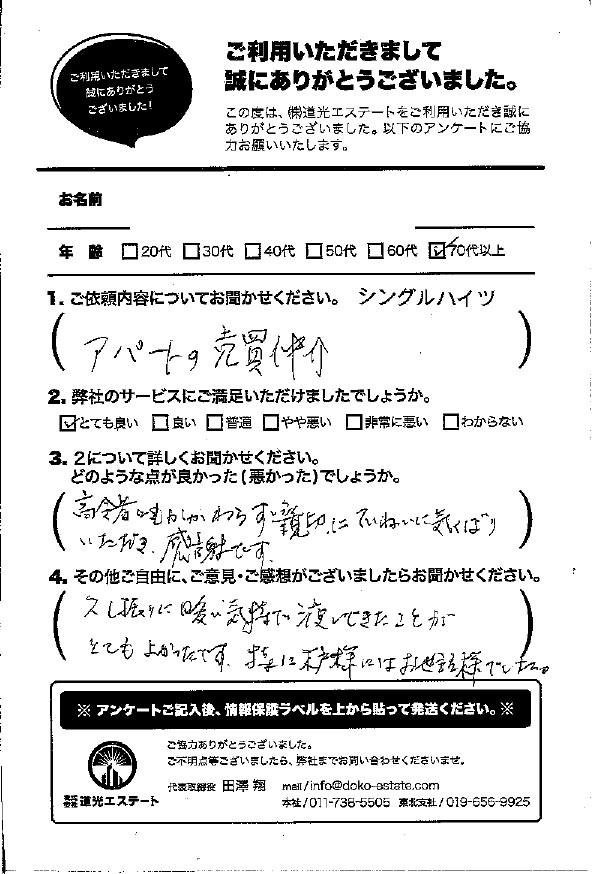 ご利用いただきまして
誠にありがとう
ございました!
ご利用いただきまして
誠にありがとうございました。
この度は、㈱道光エステートをご利用いただき誠に
ありがとうございました。以下のアンケートにご協
力お願いいたします。
お名前
年 齢 □20代 □30代 □40代 □50代 □60代 ☑70代以上
1. ご依頼内容についてお聞かせください。 シングルハイツ
(アパートの売買仲介)
2. 弊社のサービスにご満足いただけましたでしょうか。
☑とても良い □良い □普通 □やや悪い □非常に悪い □わからない
3. 2について詳しくお聞かせください。
どのような点が良かった(悪かった)でしょうか。
(高令者にもかかわらず親切にていねいに気くばり
いただき、感謝です)
4. その他ご自由に、ご意見・ご感想がございましたらお聞かせください。
(久し振りに暖い気持で渡しできたことが
とてもよかったです。特に 様にはお世話様でした。)
※ アンケートご記入後、情報保護ラベルを上から貼って発送ください。※
ご協力ありがとうございました。
ご不明点等ございましたら、弊社までお問い合わせくださいませ。
代表取締役 田澤 翔 mail/info@doko-estate.com
株式会社道光エステート
本社/011-738-5505 東北支社/019-656-9925